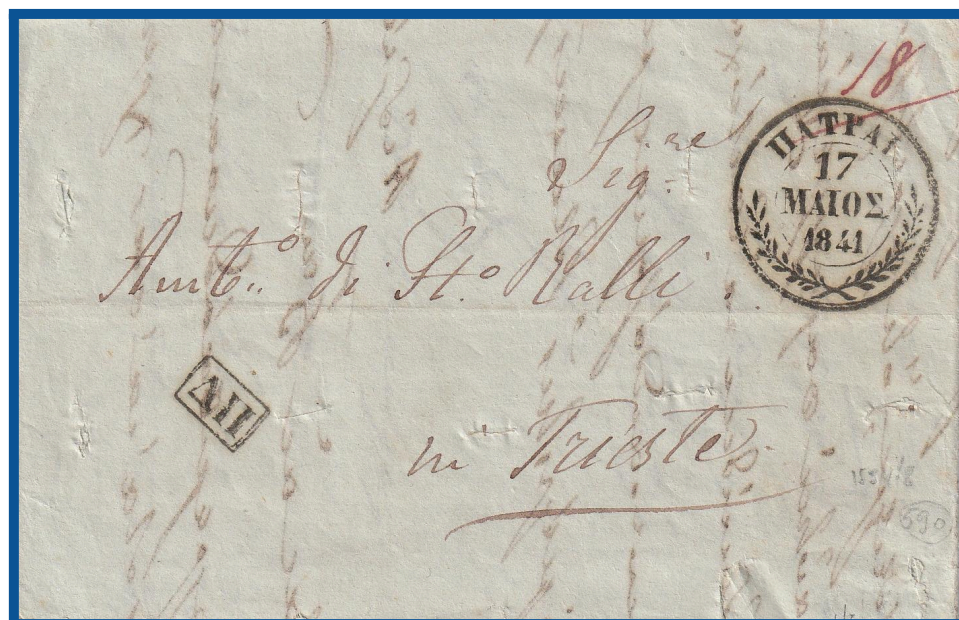 18
ΠΑΤΡΑΙ
17
ΜΑΙΟΣ
1841
Sig.re
Amb.o di St.o Ralli
ΔΠ
in Trieste
590